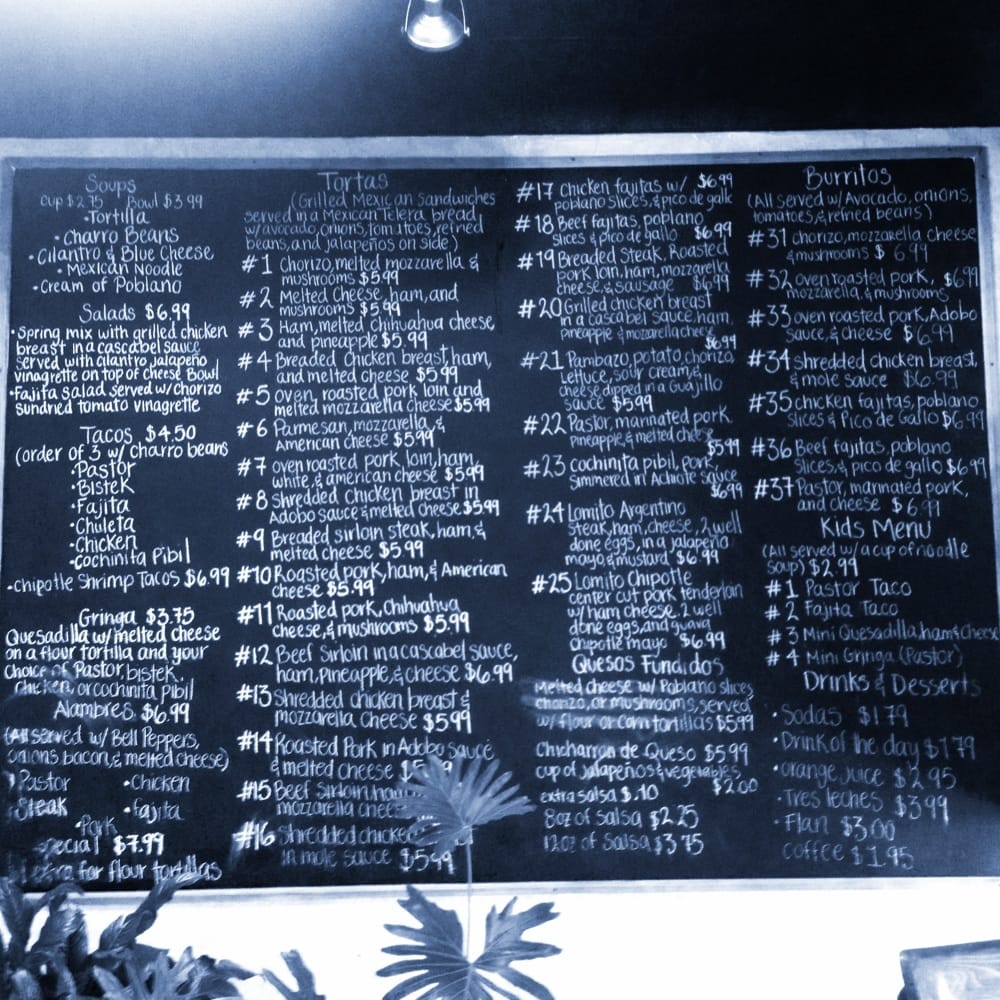 Soups
cup $2.75 Bowl $3.99
•Tortilla
•Charro Beans
•Cilantro & Blue Cheese
•Mexican Noodle
•Cream of Poblano
Salads $6.99
•Spring mix with grilled chicken
breast in a cascabel sauce
served with cilantro jalapeño
vinagrette on top of cheese Bowl
•Fajita salad served w/chorizo
sundried tomato vinagrette
Tacos $4.50
(order of 3 w/ charro beans
•Pastor
•Bistek
•Fajita
•Chuleta
•Chicken
•Cochinita Pibil
•Chipotle Shrimp Tacos $6.99
Gringa $3.75
Quesadilla w/melted cheese
on a flour tortilla and your
choice of Pastor, bistek,
chicken, or cochinita pibil
Alambres $6.99
(All served w/ Bell Peppers,
onions bacon, & melted cheese)
Pastor •Chicken
Steak •fajita
•Pork
$7.99
for flour tortillas
Tortas
(Grilled Mexican Sandwiches
served in a Mexican Telera bread
w/avocado, onions, tomatoes, refried
beans, and jalapeños on side)
#1 Chorizo, melted mozzarella &
mushrooms $5.99
#2 Melted Cheese, ham, and
mushrooms $5.99
#3 Ham, melted chihuahua cheese
and pineapple $5.99
#4 Breaded Chicken breast, ham,
and melted cheese $5.99
#5 oven, roasted pork loin and
melted mozzarella cheese $5.99
#6 Parmesan, mozzarella, &
American cheese $5.99
#7 oven roasted pork loin, ham,
white, & american cheese $5.99
#8 Shredded chicken breast in
Adobo sauce & melted cheese $5.99
#9 Breaded sirloin steak, ham, &
melted cheese $5.99
#10 Roasted pork, ham, & American
cheese $5.99
#11 Roasted pork, Chihuahua
cheese, & mushrooms $5.99
#12 Beef Sirloin in a cascabel sauce,
ham, pineapple, & cheese $6.99
#13 Shredded chicken breast &
mozzarella cheese $5.99
#14 Roasted Pork in Adobo sauce
& melted cheese
#15 Beef Sirloin, ham
mozzarella
#16 Shredded
in mole sauce $5.99
#17 Chicken fajitas w/ $6.99
poblano slices, & pico de gallo
#18 Beef fajitas, poblano
slices & pico de gallo $6.99
#19 Breaded Steak, Roasted
pork loin, ham, mozzarella
cheese, & sausage $6.99
#20 Grilled chicken breast
in a cascabel sauce, ham
pineapple & mozzarella cheese
$6.99
#21 Pambazo, potato, chorizo,
Lettuce, sour cream, &
cheese, dipped in a Guajillo
sauce $5.99
#22 Pastor, marinated pork
pineapple, & melted cheese
$5.99
#23 cochinita pibil, pork,
simmered in Achiote sauce
$6.99
#24 Lomito Argentino
steak, ham, cheese, 2 well
done eggs, in a jalapeño
mayo & mustard $6.99
#25 Lomito Chipotle
center cut pork tenderloin
w/ham cheese, 2 well
done eggs, and guava
Chipotle mayo $6.99
Quesos Fundidos
Melted cheese w/ Poblano slices
chorizo, or mushrooms, served
w/ flour or corn tortillas $5.99
Chicharron de Queso $5.99
cup of jalapeños & vegetables
$2.00
extra salsa $.10
8oz of salsa $2.25
12oz of Salsa $3.75
Burritos
(All served w/Avocado, onions,
tomatoes, & refried beans)
#31 chorizo, mozzarella cheese
& mushrooms $6.99
#32 oven roasted pork, $6.99
mozzarella, & mushrooms
#33 oven roasted pork, Adobo
sauce, & cheese $6.99
#34 shredded chicken breast,
& mole sauce $6.99
#35 chicken fajitas, poblano
slices & Pico de Gallo $6.99
#36 Beef fajitas, poblano
slices, & pico de gallo $6.99
#37 Pastor, marinated pork,
and cheese $6.99
Kids Menu
(All served w/a cup of noodle
soup) $2.99
#1 Pastor Taco
#2 Fajita Taco
#3 Mini Quesadilla, ham & cheese
#4 Mini Gringa (Pastor)
Drinks & Desserts
•Sodas $1.79
•Drink of the day $1.79
•orange juice $2.95
•Tres leches $3.99
•Flan $3.00
coffee $1.95